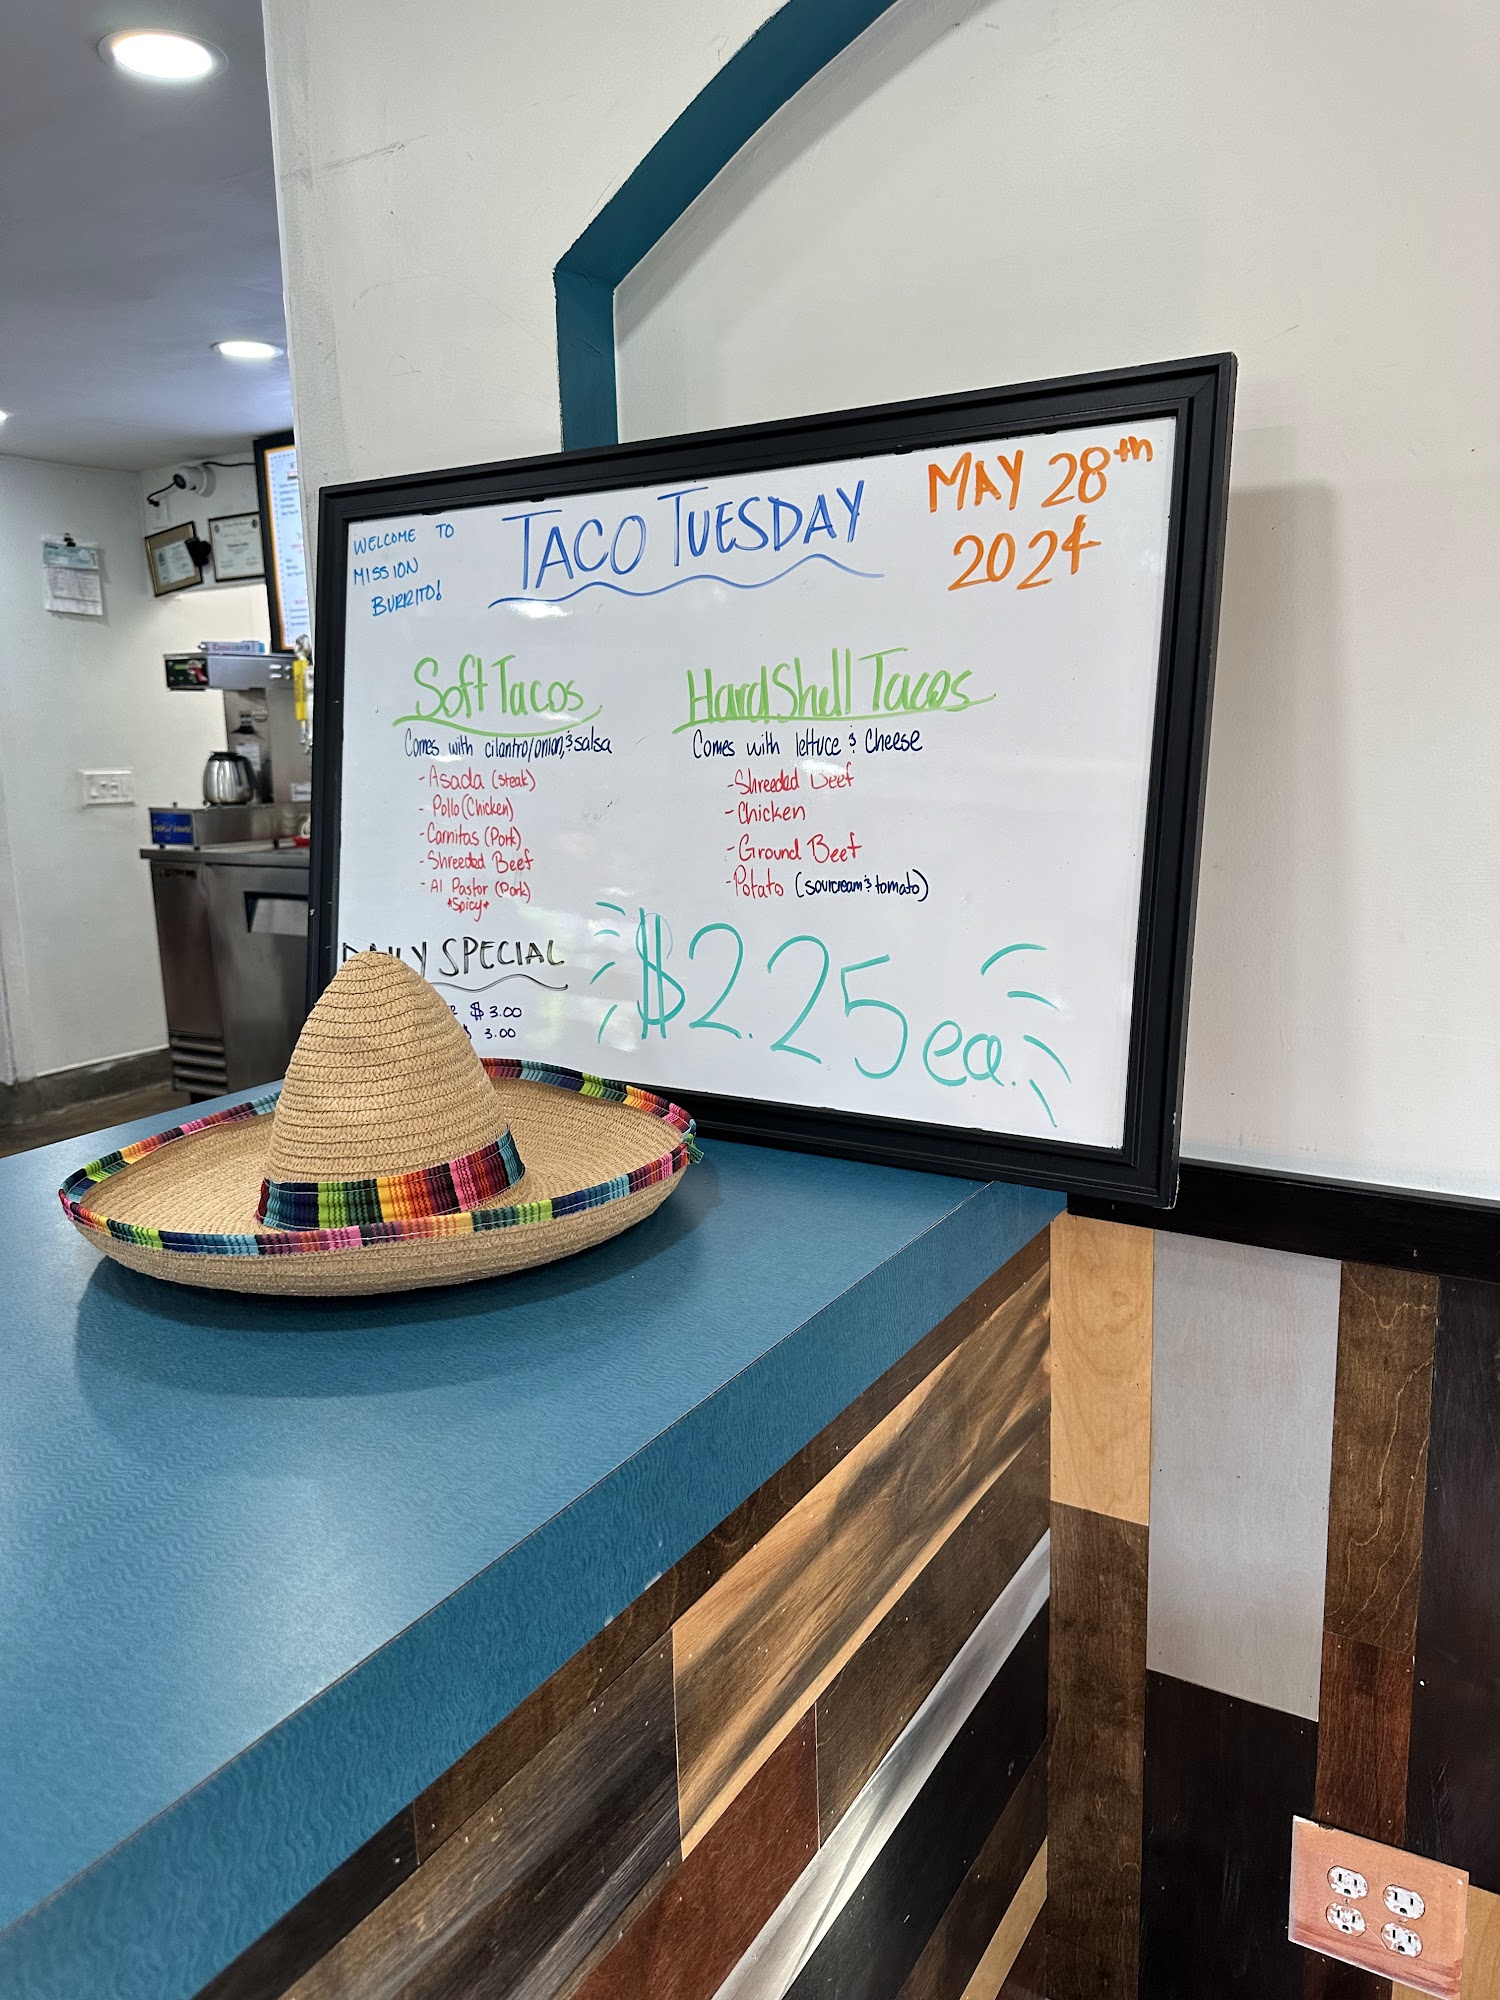 WELCOME TO
MISSION
BURRITO!
TACO TUESDAY
MAY 28th
2024
Soft Tacos
Comes with cilantro/onion, & salsa
- Asada (steak)
- Pollo (Chicken)
- Carnitas (Pork)
- Shreeded Beef
- Al Pastor (Pork)
*Spicy*
Hard Shell Tacos
Comes with lettuce & Cheese
- Shreeded Beef
- Chicken
- Ground Beef
- Potato (sourcream & tomato)
DAILY SPECIAL
$3.00
3.00
$2.25 ea.